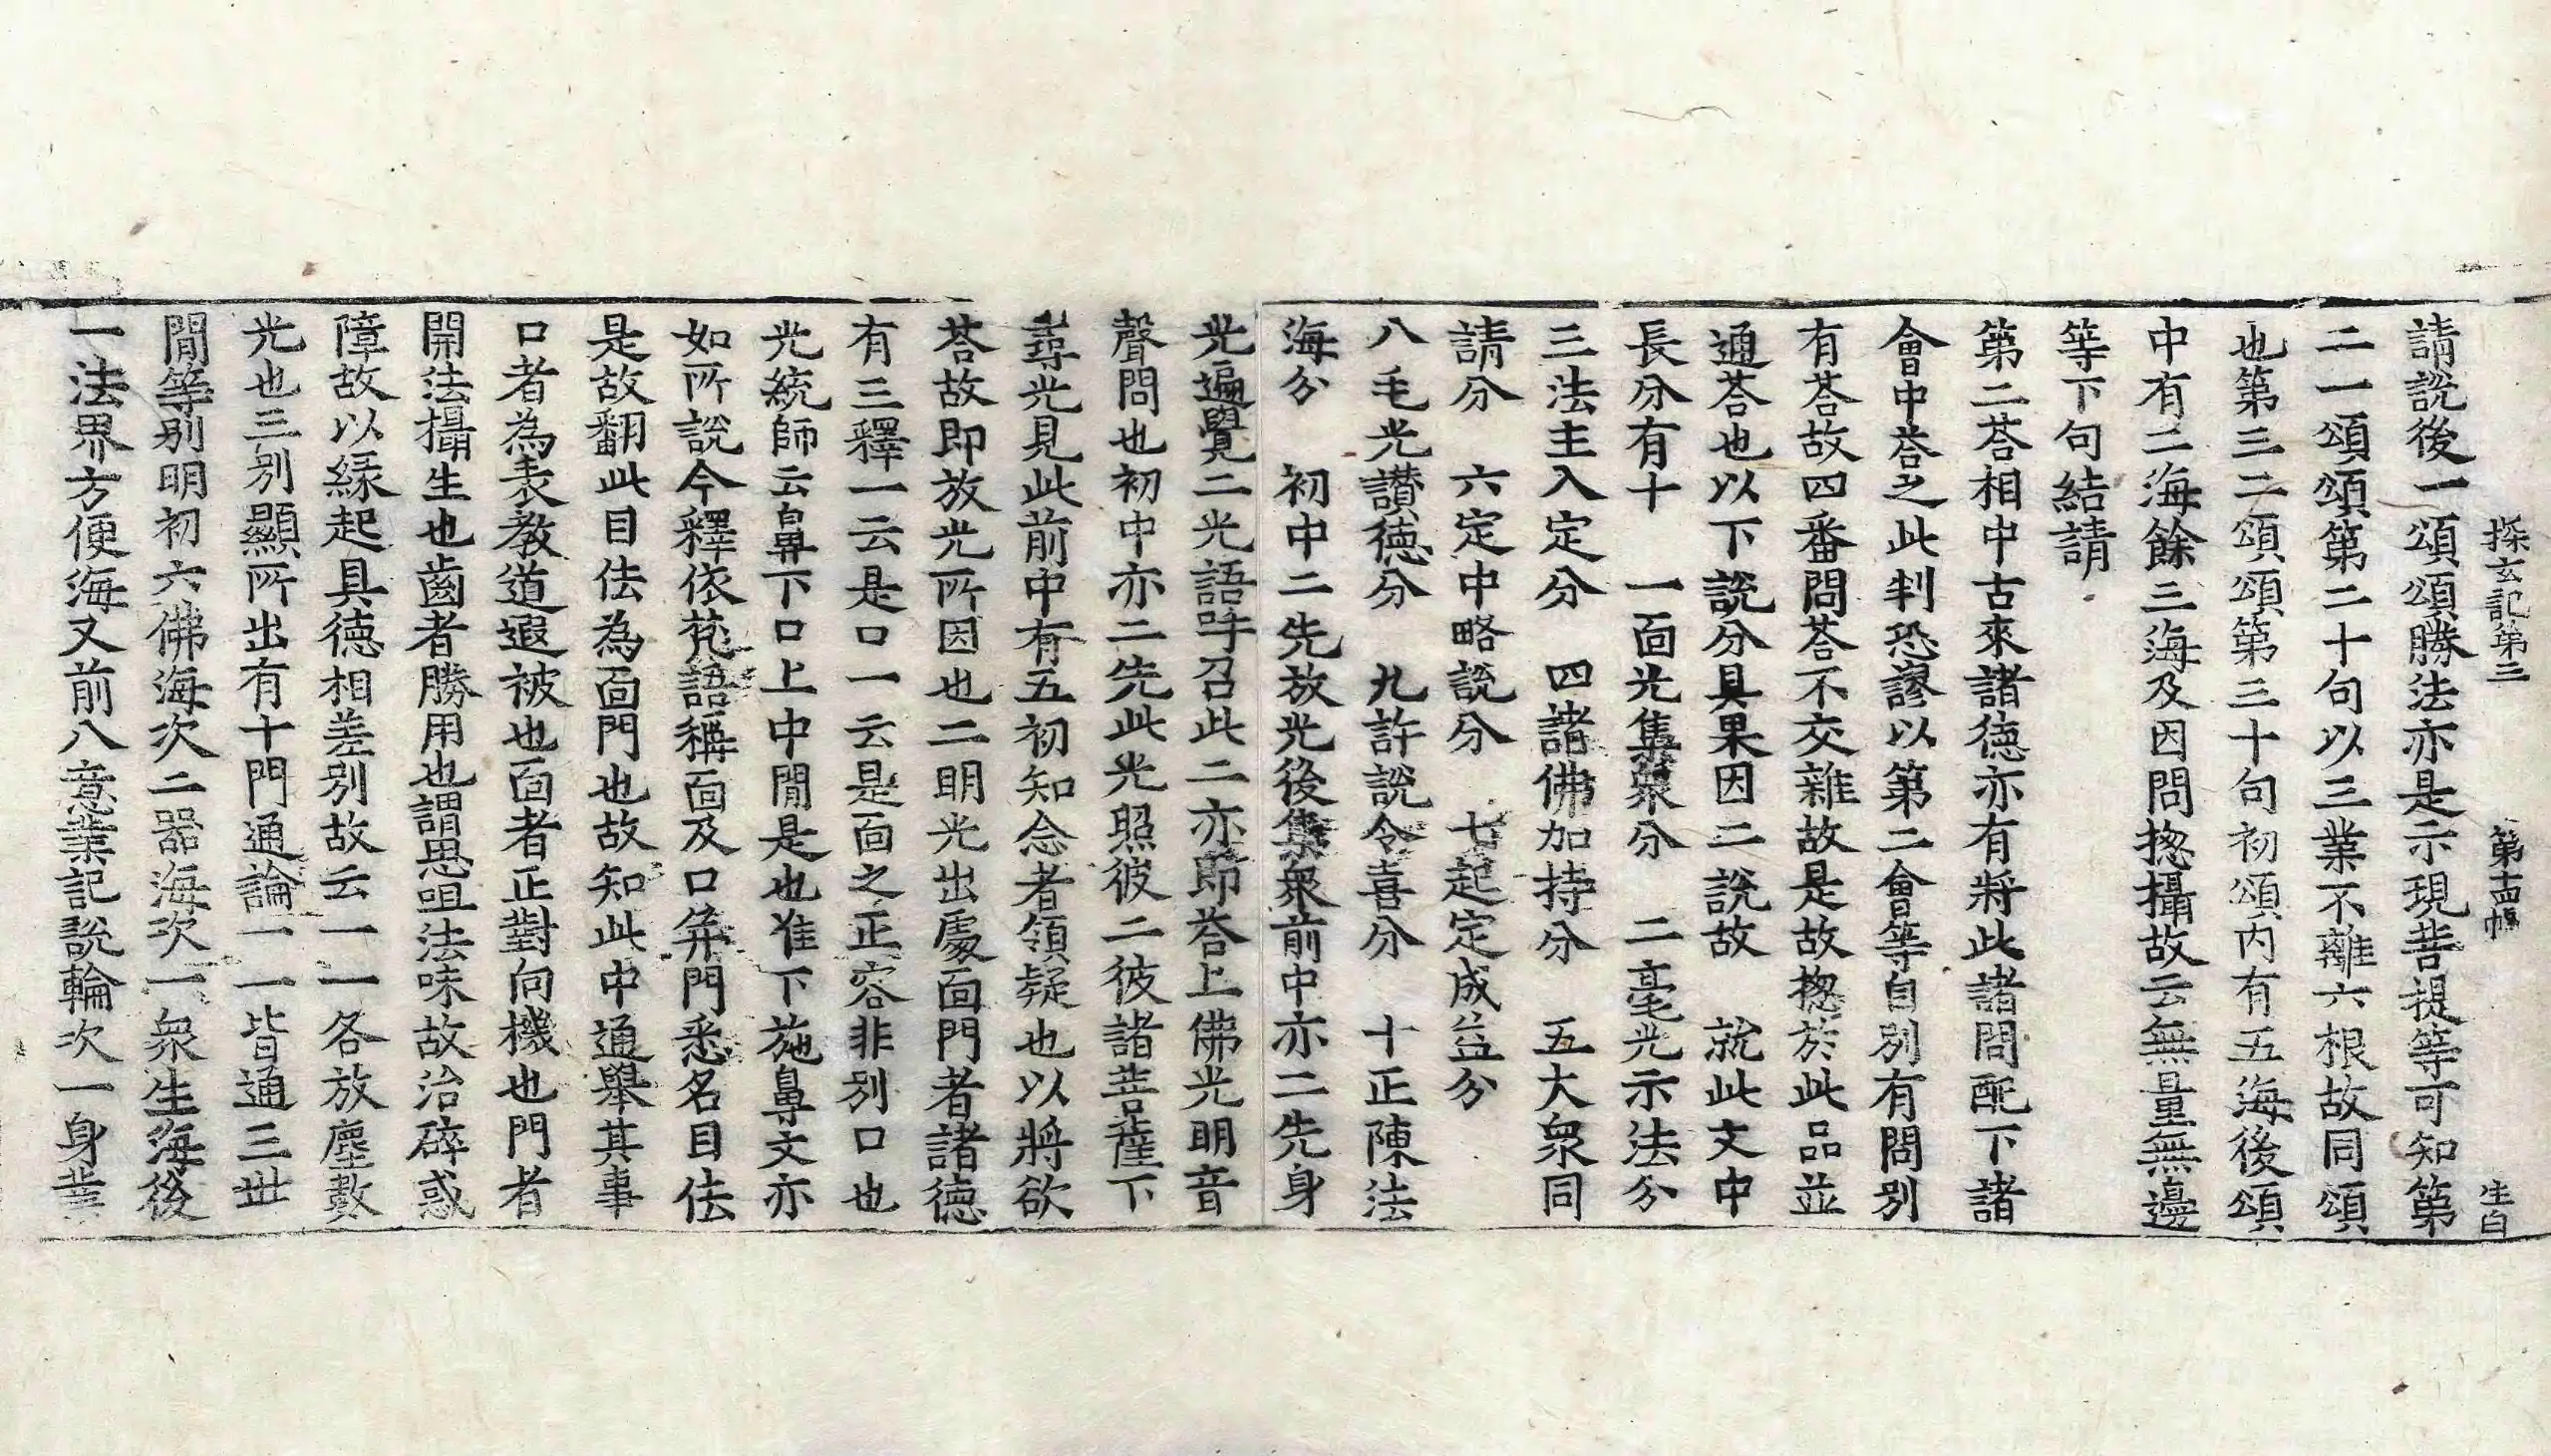 探玄記第三 第十四幅 生白
請說後一頌頌勝法亦是示現菩提等可知第
二一頌頌第二十句以三業不離六根故同頌
也第三二頌頌第三十句初頌内有五海後頌
中有二海餘三海及因問揔攝故云無量無邊
等下句結請
第二荅相中古來諸徳亦有將此諸問配下諸
會中荅之此判恐謬以第二會等自別有問別
有荅故四番問荅不交雜故是故揔於此品並
通荅也以下說分具果因二說故 就此文中
長分有十 一面光集衆分 二毫光示法分
三法主入定分 四諸佛加持分 五大衆同
請分 六定中略說分 七起定成益分
八毛光讃徳分 九許說令喜分 十正陳法
海分 初中二先放光後集衆前中亦二先身
光遍覺二光語呼召此二亦即荅上佛光明音
聲問也初中亦二先此光照彼二彼諸菩薩下
尋光見此前中有五初知念者領疑也以將欲
荅故即放光所因也二明光出處面門者諸徳
有三釋一云是口一云是面之正容非別口也
光統師云鼻下口上中間是也准下施鼻文亦
如所說今釋依梵語稱面及口并門悉名目佉
是故翻此目佉為面門也故知此中通舉其事
口者為表教道遐被也面者正對向機也門者
開法攝生也齒者勝用也謂思咀法味故治碎惑
障故以縁起具徳相差別故云一一各放塵數
光也三別顯所出有十門通論一一皆通三世
間等別明初六佛海次二器海次一衆生海後
一法界方便海又前八意業記說輪次一身業